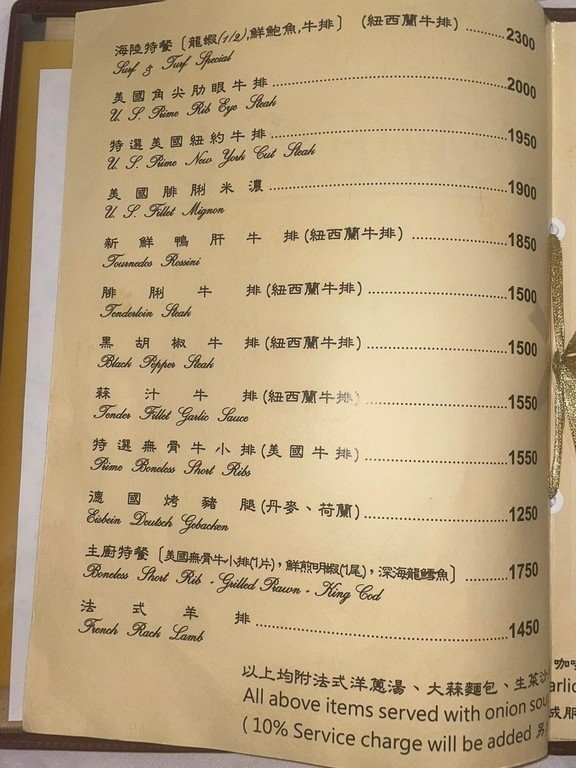 海陸特餐〔龍蝦(1/2),鮮鮑魚,牛排〕 (紐西蘭牛排) 2300
Surf & Turf Special
美國角尖肋眼牛排 2000
U. S. Prime Rib Eye Steak
特選美國紐約牛排 1950
U. S. Prime New York Cut Steak
美國腓脷米濃 1900
U. S. Fillet Mignon
新鮮鴨肝牛排(紐西蘭牛排) 1850
Tournedos Rossini
腓脷牛排(紐西蘭牛排) 1500
Tenderloin Steak
黑胡椒牛排(紐西蘭牛排) 1500
Black Pepper Steak
蒜汁牛排(紐西蘭牛排) 1550
Tender Fillet Garlic Sauce
特選無骨牛小排(美國牛排) 1550
Prime Boneless Short Ribs
德國烤豬腿(丹麥、荷蘭) 1250
Eisbein Deutsch Gebacken
主廚特餐〔美國無骨牛小排(1片),鮮煎明蝦(1尾),深海龍鱈魚〕 1750
Boneless Short Rib . Grilled Prawn . King Cod
法式羊排 1450
French Rack Lamb
以上均附法式洋蔥湯、大蒜麵包、生菜沙
All above items served with onion sou
( 10% Service charge will be added 另